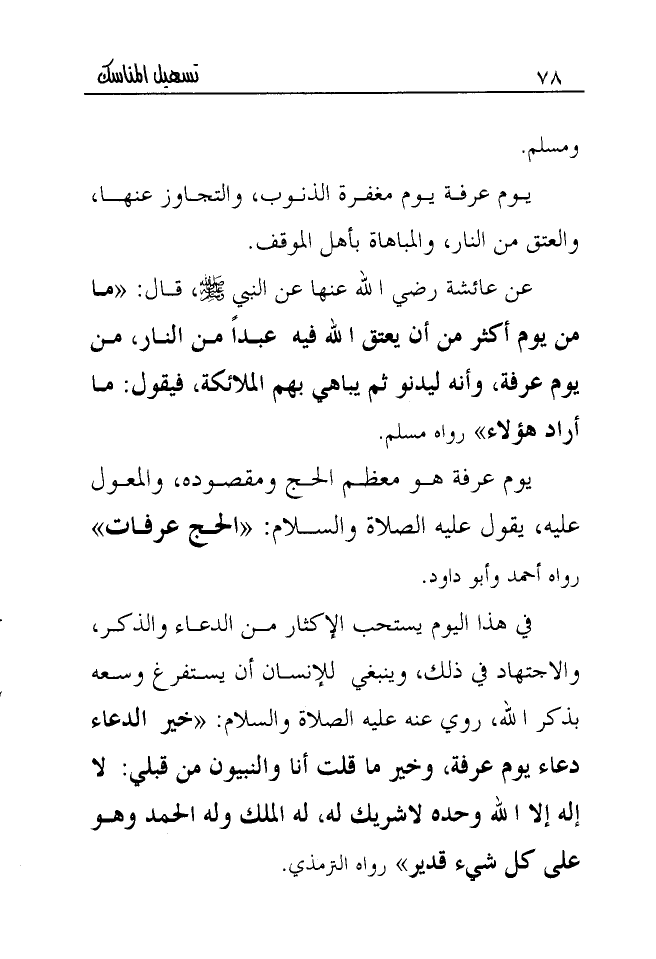 ٧٨ تسهيل المناسك
ومسلم.
يوم عرفة يوم مغفرة الذنوب، والتجاوز عنها،
والعتق من النار، والمباهاة بأهل الموقف.
عن عائشة رضي الله عنها عن النبي ﷺ، قال: «ما
من يوم أكثر من أن يعتق الله فيه عبداً من النار، من
يوم عرفة، وأنه ليدنو ثم يباهي بهم الملائكة، فيقول: ما
أراد هؤلاء» رواه مسلم.
يوم عرفة هو معظم الحج ومقصوده، والمعول
عليه، يقول عليه الصلاة والسلام: «الحج عرفات»
رواه أحمد وأبو داود.
في هذا اليوم يستحب الإكثار من الدعاء والذكر،
والاجتهاد في ذلك، وينبغي للإنسان أن يستفرغ وسعه
بذكر الله، روي عنه عليه الصلاة والسلام: «خير الدعاء
دعاء يوم عرفة، وخير ما قلت أنا والنبيون من قبلي: لا
إله إلا الله وحده لاشريك له، له الملك وله الحمد وهو
على كل شيء قدير» رواه الترمذي.